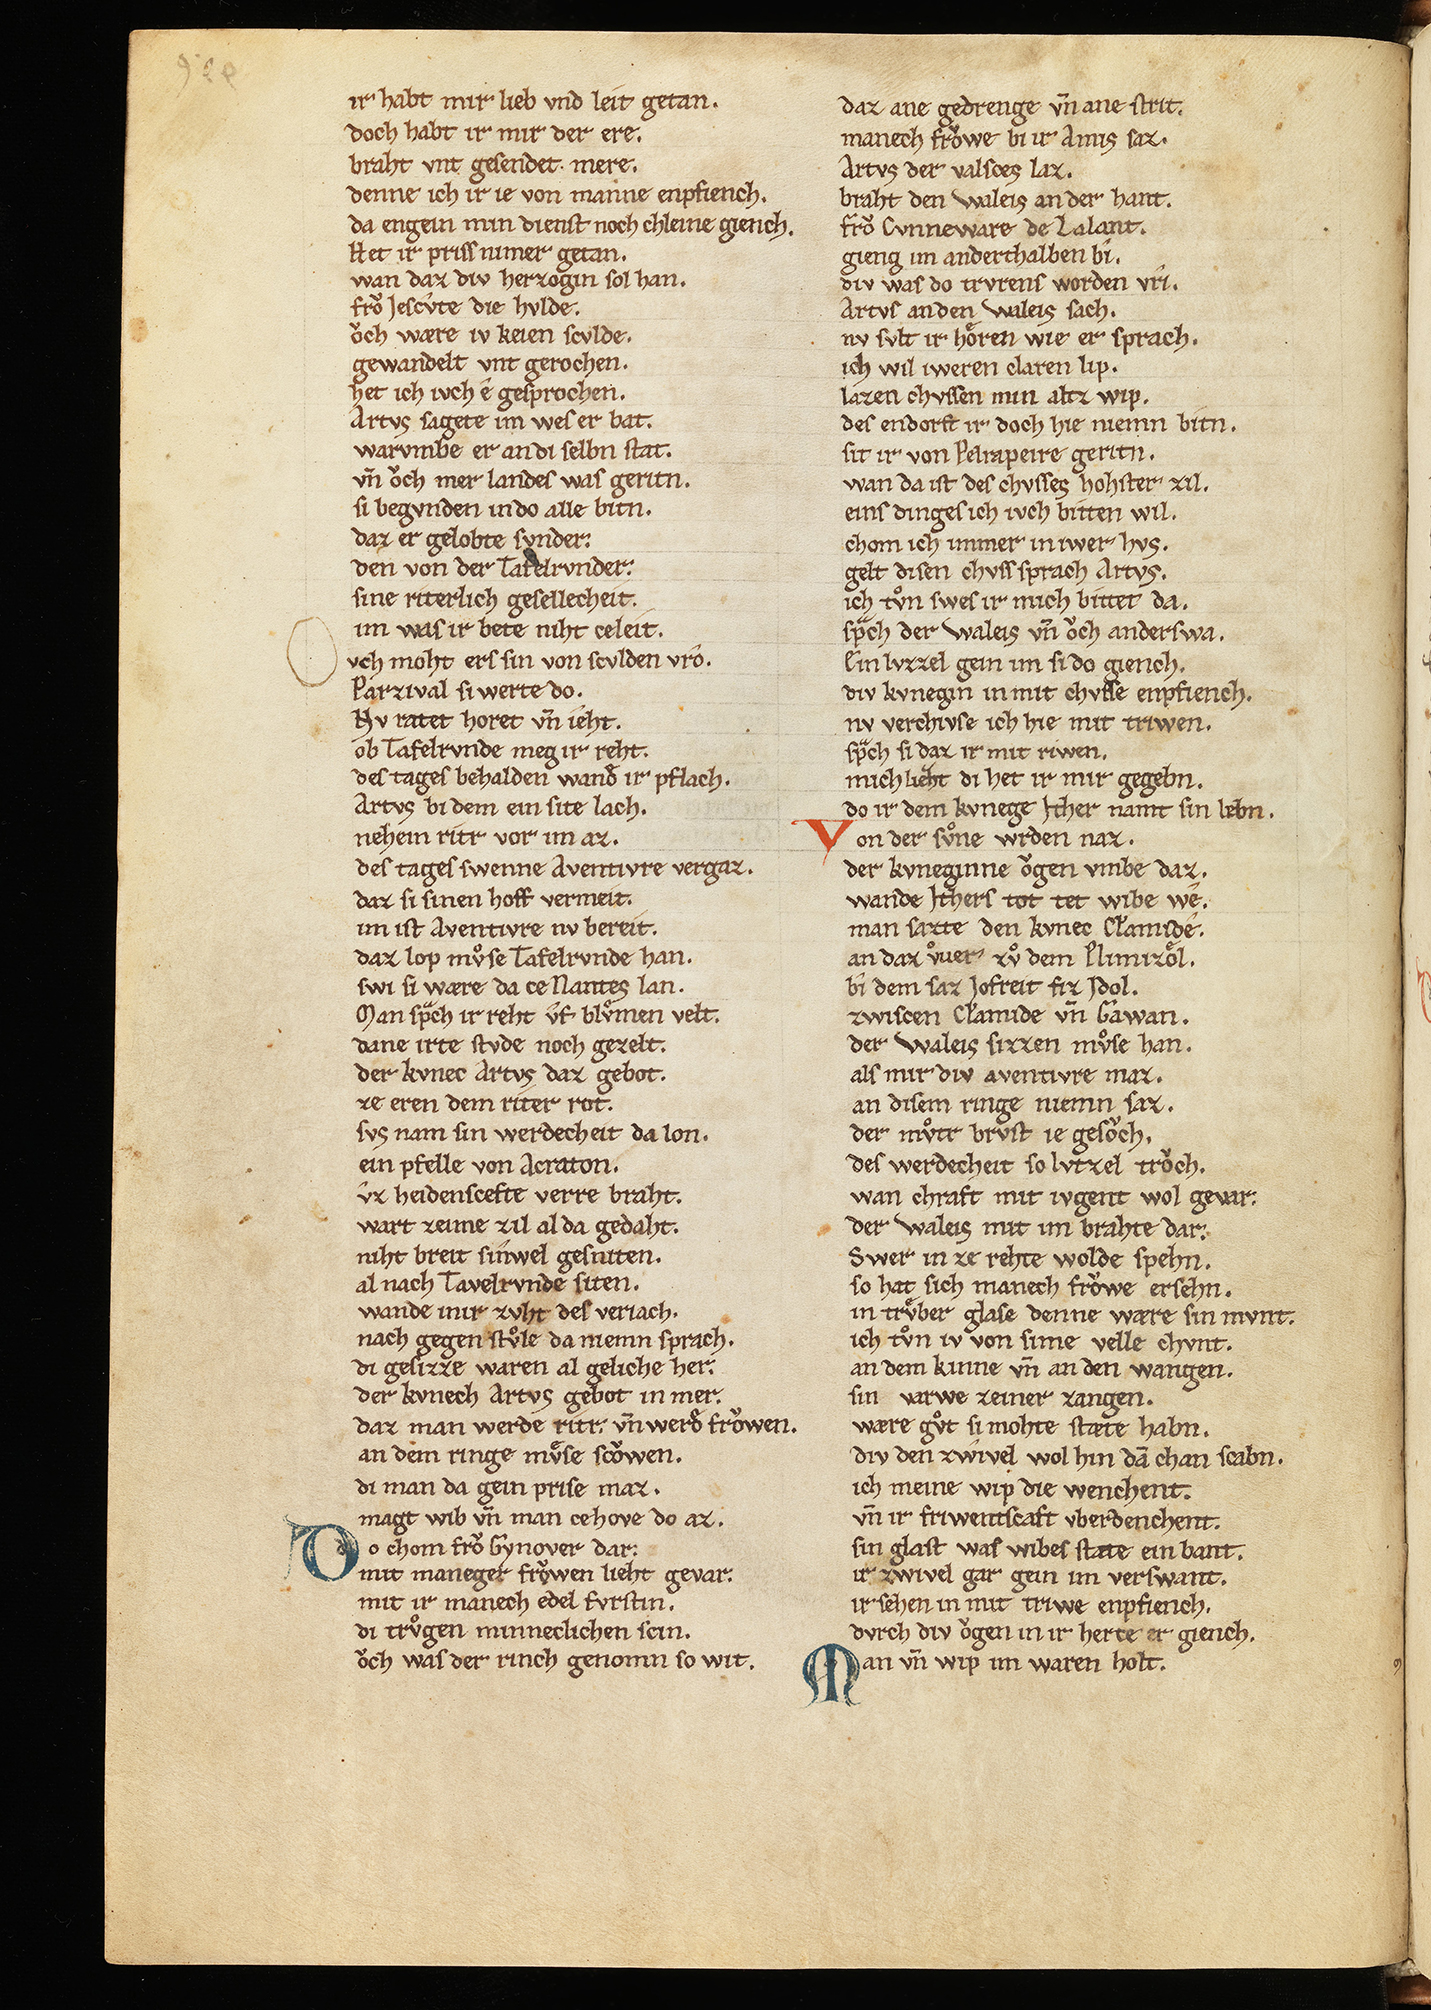 ir habt mir lieb vnd leit getan.
doch habt ir mir der ere.
braht vnt gesendet. mere.
denne ich ir ie von manne enpfiench.
da engein min dienst noch chleine giench.
Het ir priss nimer getan.
wan daz div herzogin sol han.
frŏ Jescv́te die hvlde.
ŏch wære iv keien scvlde.
gewandelt vnt gerochen.
het ich ivch ê gesprochen.
Artvs sagete im wes er bat.
warvmbe er an di selbn stat.
vn̄ ŏch mer landes was geritn.
si begvnden in do alle bitn.
daz er gelobte svnder:
den von der Tafelrvnder:
sine riterlich gesellecheit.
im was ir bete niht celeit.
vch moht ers sin von scvlden vro.
Parzival si werte do.
Nv ratet horet vn̄ ieht.
ob Tafelrvnde meg ir reht.
des tages behalden wand ir pflach.
Artvs bi dem ein site lach.
nehein ritr vor im az.
des tages swenne Aventivre vergaz.
daz si sinen hoff vermeit.
im ist Aventivre nv bereit.
daz lop mv̊se Tafelrvnde han.
swi si wære da ce Nantes lan.
Man sp̄ch ir reht v́f blv̊men velt.
dane irte stvde noch gezelt.
der kvnec Artvs daz gebot.
ze eren dem riter rot.
svs nam sin werdecheit da lon.
ein pfelle von Acraton.
v́z heidenscefte verre braht.
wart zeime zil al da gedaht.
niht breit sinwel gesniten.
al nach Tavelrvnde siten.
wande mir zvht des veriach.
nach gegen stv̊le da niemn sprach.
di gesizze waren al geliche her:
der kvnech Artvs gebot in mer.
daz man werde ritr: vn̄ werd frŏwen.
an dem ringe mv̊se scŏwen.
di man da gein prise maz.
magt wib vn̄ man cehove do az.
Do chom frŏ Gynover dar:
mit maneger frŏwen lieht gevar:
mit ir manech edel fvrstin.
di trv̊gen minneclichen scin.
ŏch was der rinch genomn so wit.
daz ane gedrenge vn̄ ane strit.
manech frŏwe bi ir Amis saz.
Artvs der valsces laz.
braht den Waleis an der hant.
frŏ Cvnneware de Lalant.
gieng im anderthalben bi.
div was do trvrens worden vri.
Artvs an den Waleis sach.
nv svlt ir hŏren wie er sprach.
ich wil iweren claren lip.
lazen chvssen min altz wip.
des endorft ir doch hie niemn bitn.
sit ir von Pelrapeire geritn.
wan da ist des chvsses hohster zil.
eins dinges ich ivch bitten wil.
chom ich immer in iwer hvs.
gelt disen chvss sprach Artvs.
ich tv̊n swes ir mich bittet da.
sp̄ch der Waleis vn̄ ŏch anderswa.
Ein lvzzel gein im si do giench.
div kvnegin in mit chvsse enpfiench.
nv verchivse ich hie mit triwen.
sp̄ch si daz ir mit riwen.
mich lieht di het ir mir gegebn.
do ir dem kvnege Ither namt sin lebn.
Von der sv̊ne wrden naz.
der kvneginne ŏgen vmbe daz.
wande Ithers tot tet wibe we.
man sazte den kvnec Clamide.
an daz v̊uer zv̊ dem Plimizŏl.
bi dem saz Jofreit fiz Jdol.
zwiscen Clamide vn̄ Gawan.
der Waleis sizzen mv̊se han.
als mir div aventivre maz.
an disem ringe niemn saz.
der mv̊tr brvst ie gesŏch.
des werdecheit so lvtzel trŏch.
wan chraft mit ivgent wol gevar:
der Waleis mit im brahte dar:
Swer in ze rehte wolde spehn.
so hat sich manech frŏwe ersehn.
in trv̊ber glase denne wære sin mvnt.
ich tv̊n iv von sime velle chvnt.
an dem kinne vn̄ an den wangen.
sin varwe zeiner zangen.
wære gv̊t si mohte stæte habn.
div den zwivel wol hin dā chan scabn.
ich meine wip die wenchent.
vn̄ ir friwentscaft vberdenchent.
sin glast was wibes stæte ein bant.
ir zwivel gar gein im verswant.
ir sehen in mit triwe enpfiench.
dvrch div ŏgen in ir herce er giench.
Man vn̄ wip im waren holt.